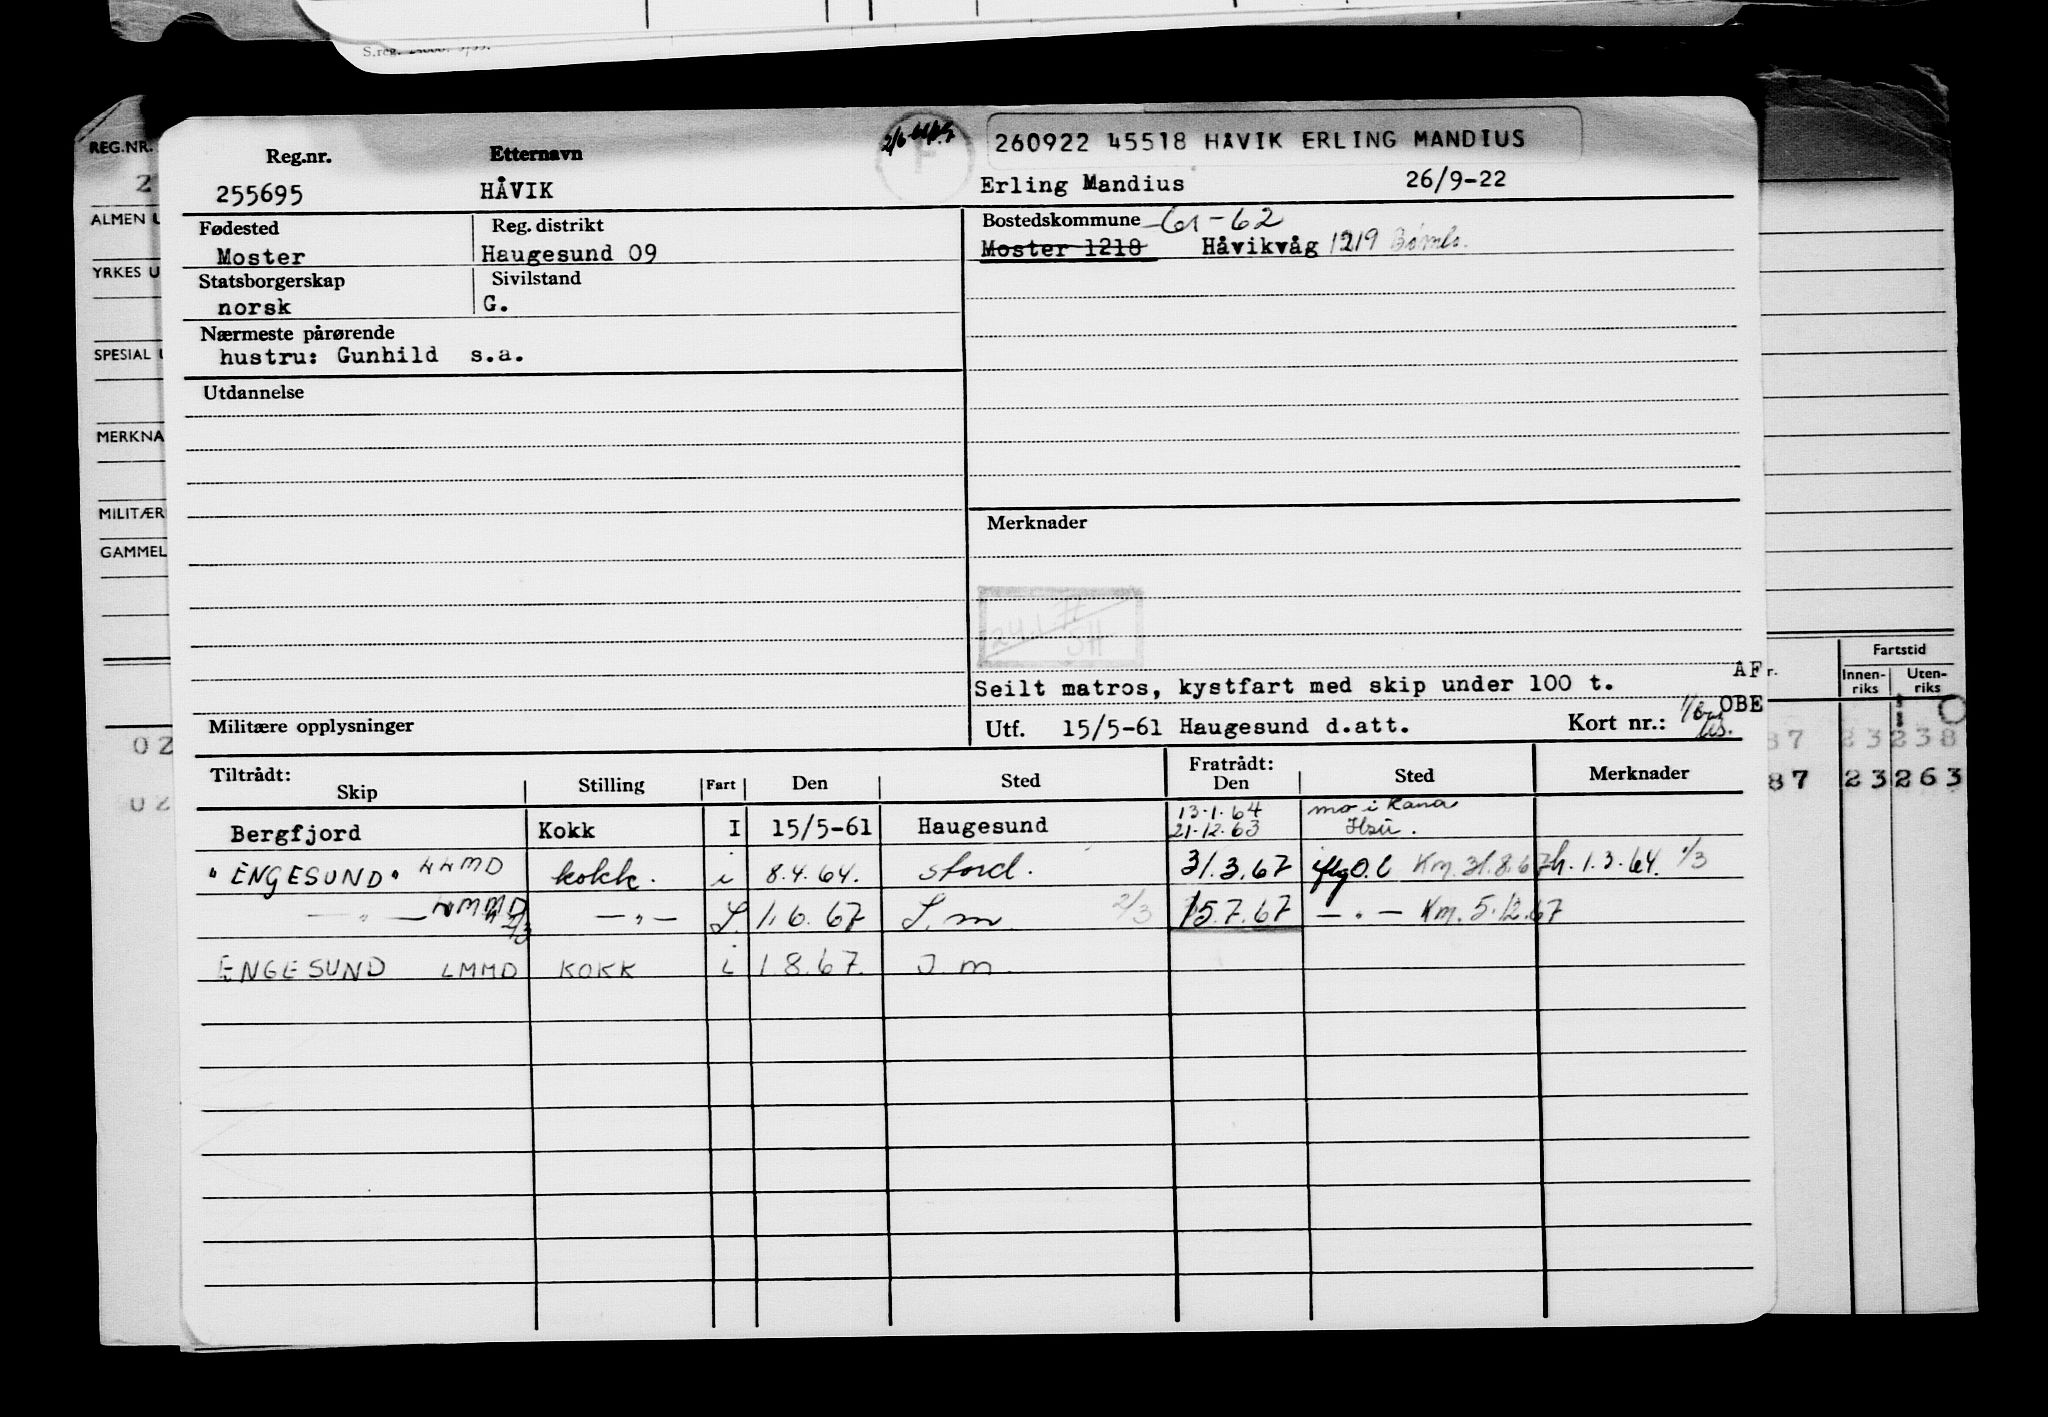 S.reg.
REG.NR.
2
ALMEN U
YRKES U
SPESIAL U
MERKNA
MILITÆR
GAMMEL
02
02
Reg.nr. Etternavn
F
260922 45518 HÅVIK ERLING MANDIUS
255695 HÅVIK Erling Mandius 26/9-22
Fødested Reg. distrikt Bostedskommune 61-62
Moster Haugesund 09 Moster 1218 Håvikvåg 1219 Bømlo.
Statsborgerskap Sivilstand
norsk G.
Nærmeste pårørende
hustru: Gunhild s.a.
Utdannelse
Merknader
Seilt matros, kystfart med skip under 100 t.
AF r.
OBE
Militære opplysninger Utf. 15/5-61 Haugesund d.att. Kort nr.:
Fartstid
Innen-riks Uten-riks
87 23 238
87 23 263
Tiltrådt: Fratrådt:
Skip Stilling Fart Den Sted Den Sted Merknader
13.1.64 mo i Rana
Bergfjord Kokk I 15/5-61 Haugesund 21.12.63
"ENGESUND" LLMD kokk. i 8.4.64. stord. 31.3.67 Km. 31.8.67 h. 1.3.64. 1/3
— " — — " — 1.6.67 2/3 15.7.67 — " — Km. 5.12.67
2/3
ENGESUND LMMD KOKK i 1.8.67.